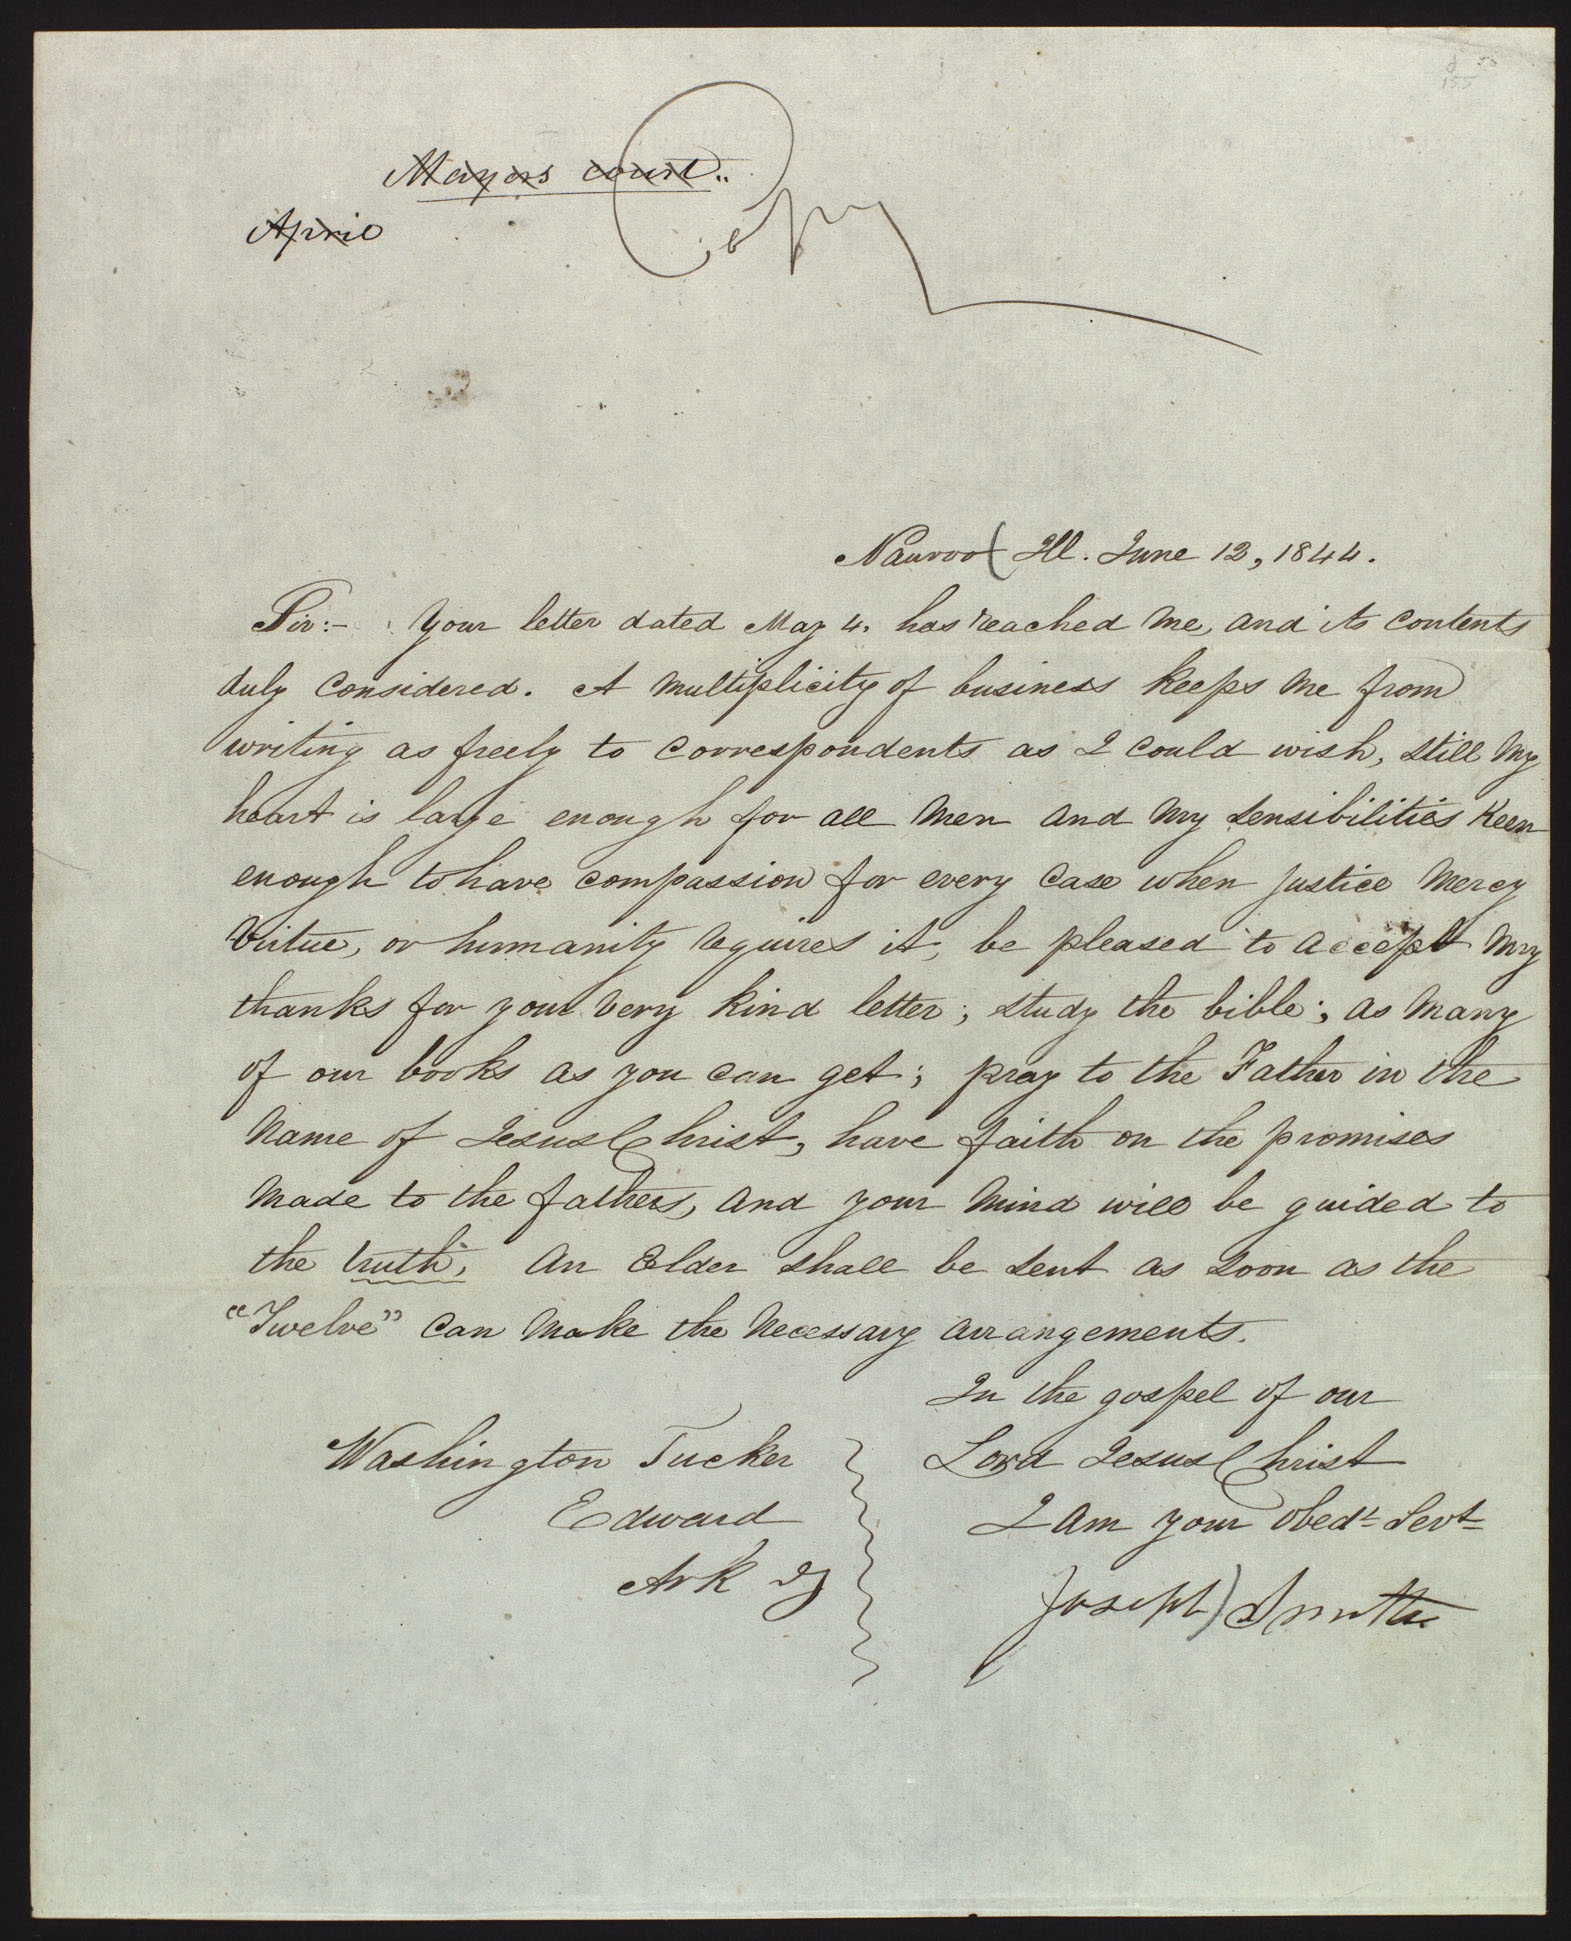 155
Mayors court.
April
Copy
Nauvoo Ill. June 12, 1844.
Sir:- Your letter dated May 4. has reached me, and its contents
duly considered. A multiplicity of business keeps me from
writing as freely to correspondents as I could wish, still my
heart is large enough for all men and my sensibilities keen
enough to have compassion for every case when justice mercy
virtue, or humanity requires it; be pleased to accept my
thanks for your very kind letter; study the bible; as many
of our books as you can get; pray to the Father in the
name of Jesus Christ, have faith on the promises
made to the fathers, and your mind will be guided to
the truth. An Elder shall be sent as soon as the
"Twelve" can make the necessary arrangements.
In the gospel of our
Lord Jesus Christ
I am your obedt. Servt.
Joseph Smith
Washington Tucker
Edward
Ark